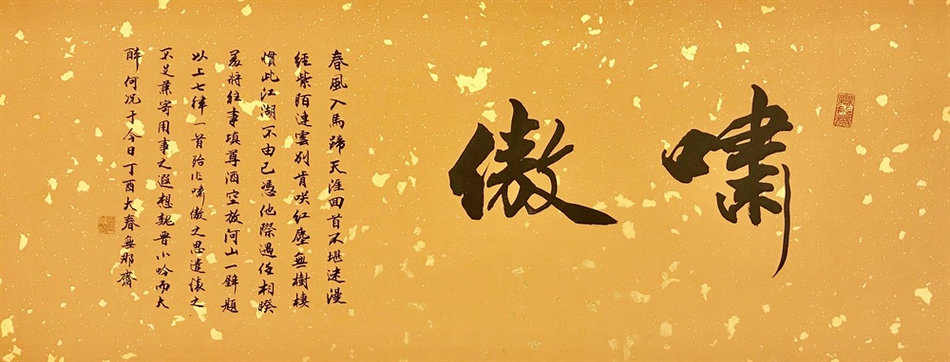 嘯傲
春風入馬蹄天涯回首不堪迷漫
經紫陌連雲別肯咲紅塵無樹棲
慣此江湖不由己憑他際遇任相睽
羞將往事填尊酒空放河山一題
以上七律一首殆作嘯傲之思遣懷之
不足業寄用事之遐想魏晉小吟而大
醉何况于今日丁酉大春無那齋